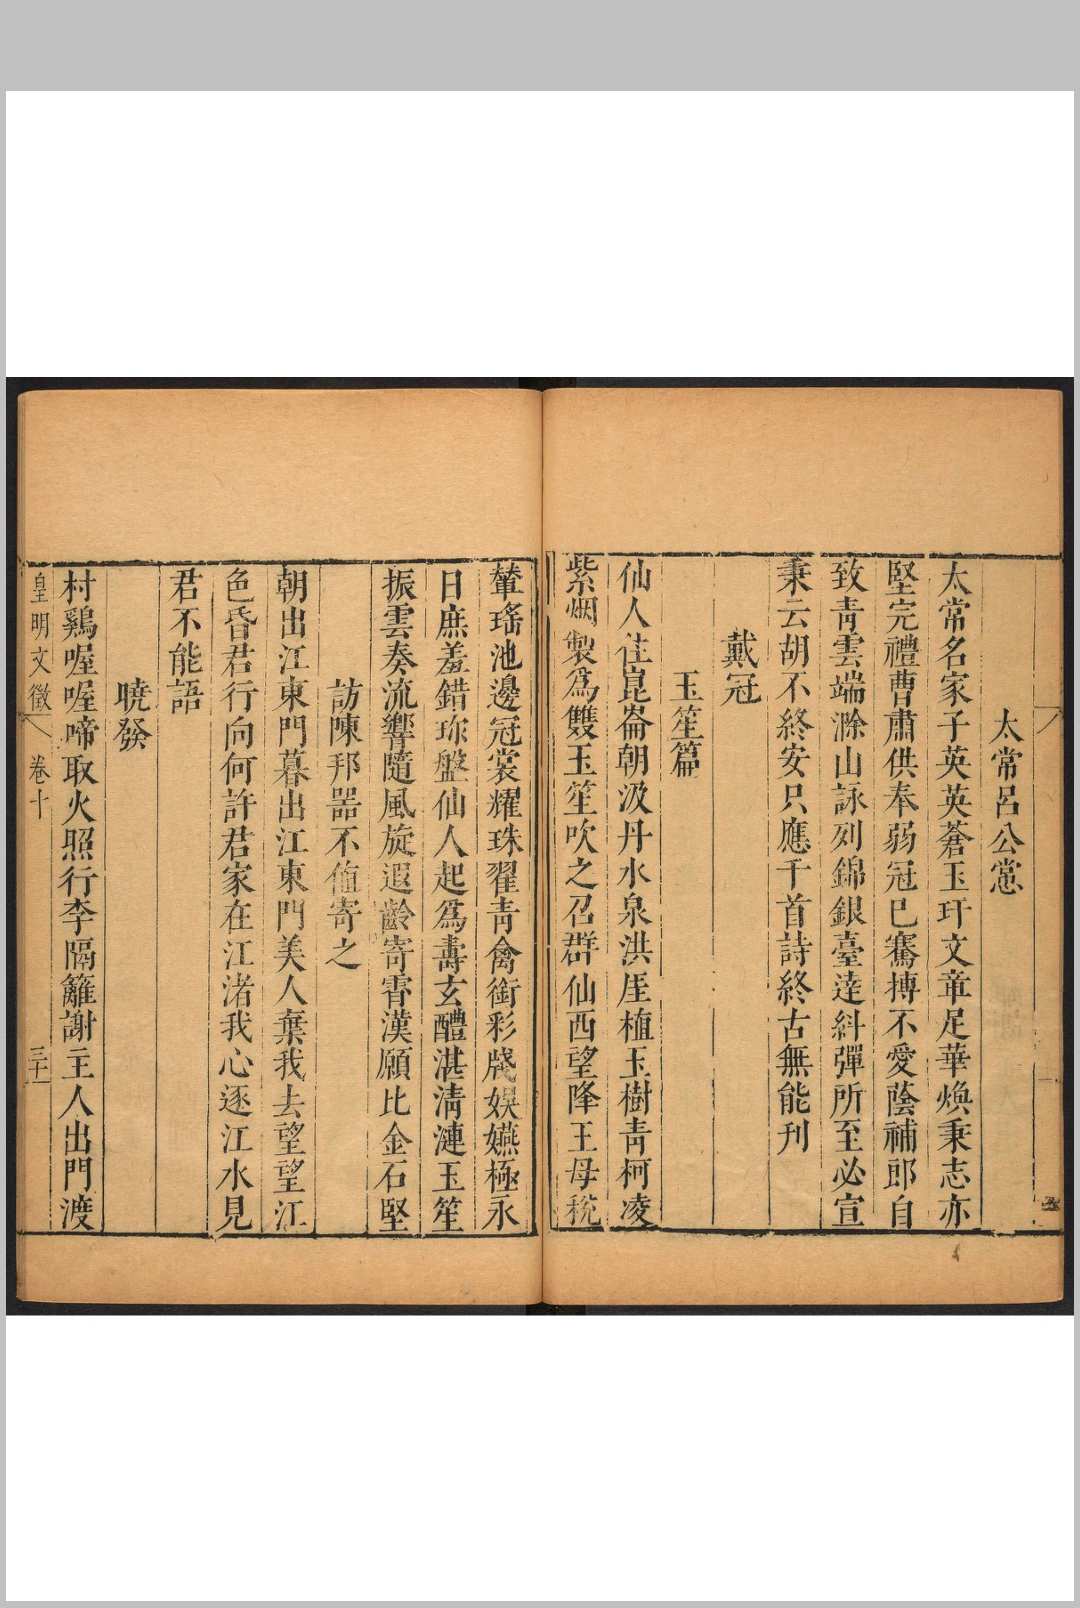 太常呂公㦂
太常名家子英英蒼玉玕文章足華煥秉志亦
堅完禮曹肅供奉弱冠已騫摶不愛蔭補郎自
致青雲端滁山詠列錦銀臺達糾彈所至必宣
秉云胡不終安只應千首詩終古無能刊
戴冠
玉笙篇
仙人徃崑崙朝汲丹水泉洪厓植玉樹青柯凌
紫烟製爲雙玉笙吹之召群仙西望降王母稅
輦瑤池邊冠裳耀珠翟青禽銜彩牋娛嬿極永
日庶羞錯珎盤仙人起爲壽玄醴湛清漣玉笙
振雲奏流響隨風旋遐齡寄霄漢願比金石堅
訪陳邦器不值寄之
朝出江東門暮出江東門美人棄我去望望江
色昏君行向何許君家在江渚我心逐江水見
君不能語
曉發
村鷄喔喔啼取火照行李隔籬謝主人出門渡
皇明文徵 卷十 三十一